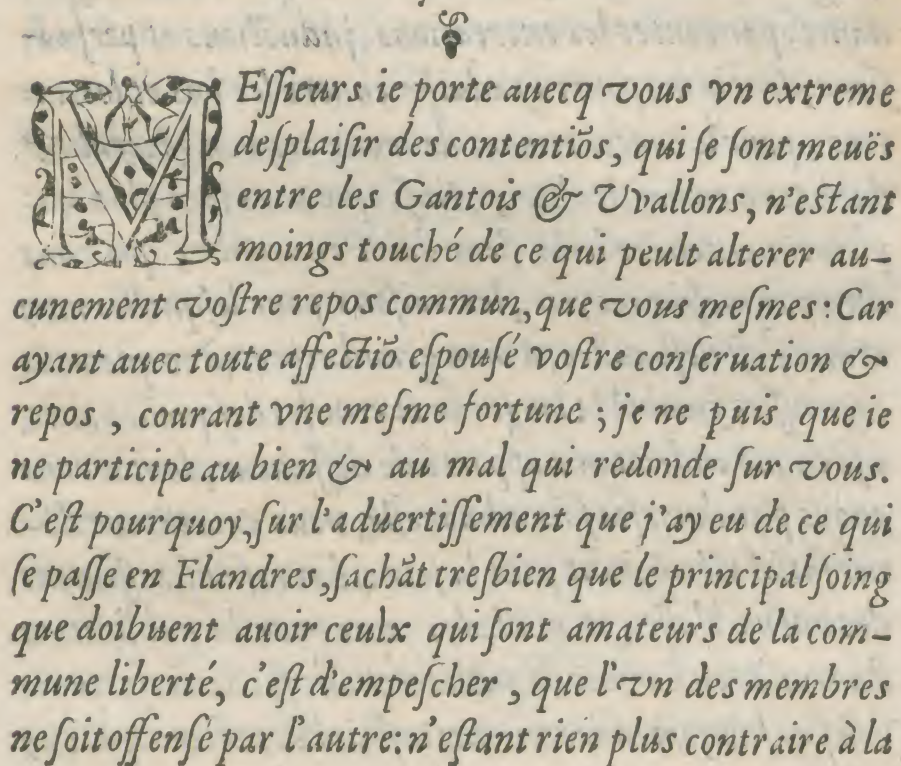 MEſſieurs ie porte auecq vous vn extreme
deſplaiſir des contentiõs, qui ſe ſont meuës
entre les Gantois & Uvallons, n'eſtant
moings touché de ce qui peult alterer au-
cunement voſtre repos commun, que vous meſmes: Car
ayant auec toute affectiõ eſpouſé voſtre conſeruation &
repos, courant vne meſme fortune; je ne puis que ie
ne participe au bien & au mal qui redonde ſur vous.
C'eſt pourquoy, ſur l'aduertiſſement que j'ay eu de ce qui
ſe paſſe en Flandres, ſachãt treſbien que le principal ſoing
que doibuent auoir ceulx qui ſont amateurs de la com-
mune liberté, c'eſt d'empeſcher, que l'vn des membres
ne ſoit offenſé par l'autre: n'eſtant rien plus contraire à la